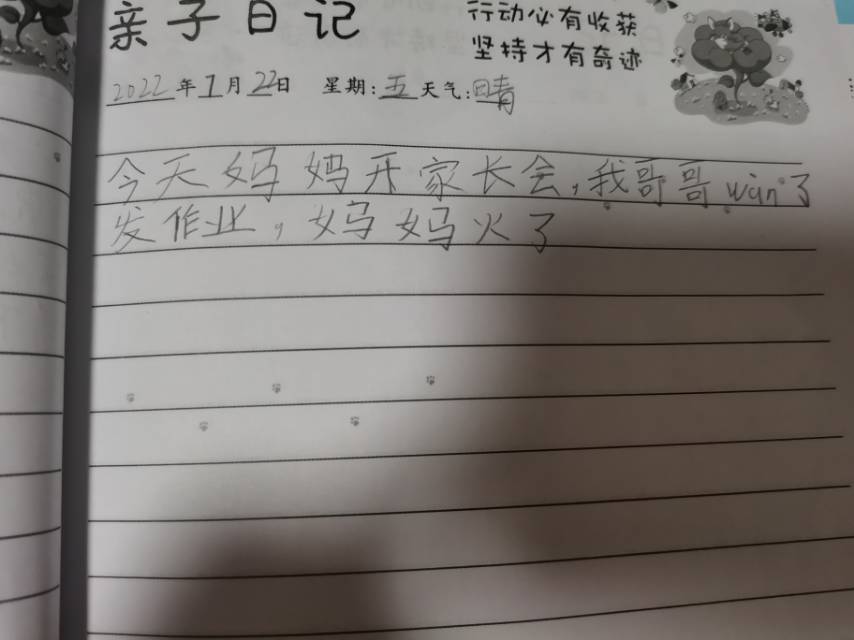 亲子日记
行动必有收获
坚持才有奇迹
2022年7月22日 星期:五 天气:晴
今天妈妈开家长会,我哥哥wàn了
发作业,妈妈火了